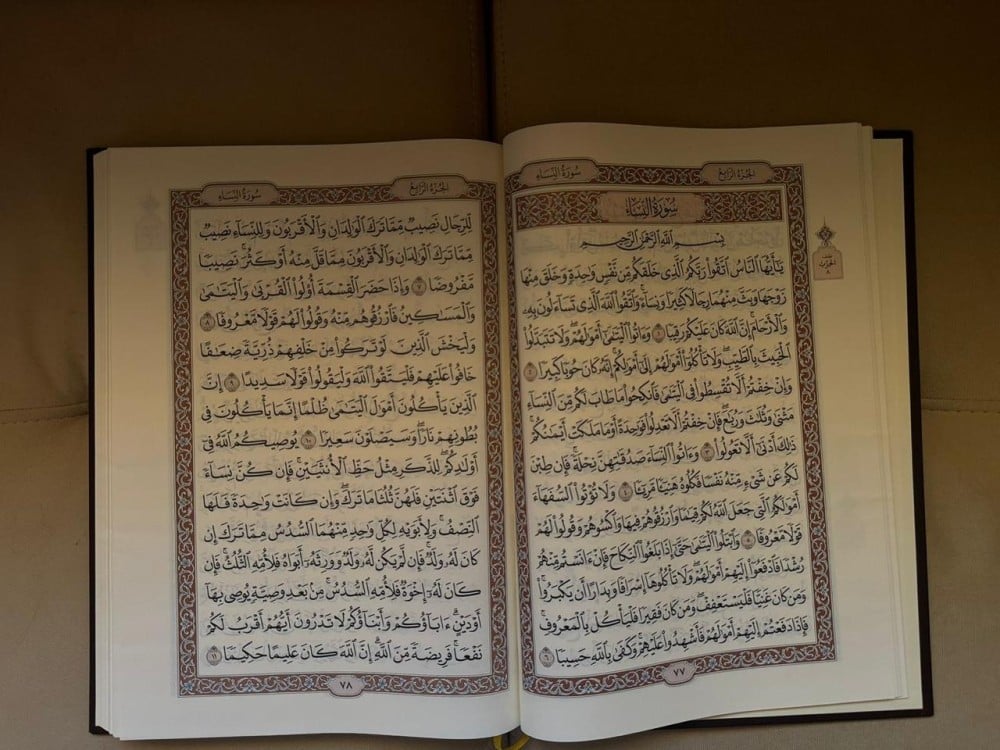 سُورَةُ النِّسَاءِ
الجُزْءُ الرَّابِعُ
سُورَةُ النِّسَاءِ
بِسْمِ اللَّهِ الرَّحْمَٰنِ الرَّحِيمِ
يَٰٓأَيُّهَا النَّاسُ اتَّقُوا رَبَّكُمُ الَّذِي خَلَقَكُم مِّن نَّفْسٍ وَٰحِدَةٍ وَخَلَقَ مِنْهَا
زَوْجَهَا وَبَثَّ مِنْهُمَا رِجَالًا كَثِيرًا وَنِسَآءً ۚ وَاتَّقُوا اللَّهَ الَّذِي تَسَآءَلُونَ بِهِۦ
وَالْأَرْحَامَ ۚ إِنَّ اللَّهَ كَانَ عَلَيْكُمْ رَقِيبًا ١ وَءَاتُوا الْيَتَٰمَىٰٓ أَمْوَٰلَهُمْ ۖ وَلَا تَتَبَدَّلُوا
الْخَبِيثَ بِالطَّيِّبِ ۖ وَلَا تَأْكُلُوٓا أَمْوَٰلَهُمْ إِلَىٰٓ أَمْوَٰلِكُمْ ۚ إِنَّهُۥ كَانَ حُوبًا كَبِيرًا ٢
وَإِنْ خِفْتُمْ أَلَّا تُقْسِطُوا فِي الْيَتَٰمَىٰ فَانكِحُوا مَا طَابَ لَكُم مِّنَ النِّسَآءِ
مَثْنَىٰ وَثُلَٰثَ وَرُبَٰعَ ۖ فَإِنْ خِفْتُمْ أَلَّا تَعْدِلُوا فَوَٰحِدَةً أَوْ مَا مَلَكَتْ أَيْمَٰنُكُمْ ۚ
ذَٰلِكَ أَدْنَىٰٓ أَلَّا تَعُولُوا ٣ وَءَاتُوا النِّسَآءَ صَدُقَٰتِهِنَّ نِحْلَةً ۚ فَإِن طِبْنَ
لَكُمْ عَن شَيْءٍ مِّنْهُ نَفْسًا فَكُلُوهُ هَنِيٓـًٔا مَّرِيٓـًٔا ٤ وَلَا تُؤْتُوا السُّفَهَآءَ
أَمْوَٰلَكُمُ الَّتِي جَعَلَ اللَّهُ لَكُمْ قِيَٰمًا وَارْزُقُوهُمْ فِيهَا وَاكْسُوهُمْ وَقُولُوا لَهُمْ
قَوْلًا مَّعْرُوفًا ٥ وَابْتَلُوا الْيَتَٰمَىٰ حَتَّىٰٓ إِذَا بَلَغُوا النِّكَاحَ فَإِنْ ءَانَسْتُم مِّنْهُمْ
رُشْدًا فَادْفَعُوٓا إِلَيْهِمْ أَمْوَٰلَهُمْ ۖ وَلَا تَأْكُلُوهَآ إِسْرَافًا وَبِدَارًا أَن يَكْبَرُوا ۚ
وَمَن كَانَ غَنِيًّا فَلْيَسْتَعْفِفْ ۖ وَمَن كَانَ فَقِيرًا فَلْيَأْكُلْ بِالْمَعْرُوفِ ۚ
فَإِذَا دَفَعْتُمْ إِلَيْهِمْ أَمْوَٰلَهُمْ فَأَشْهِدُوا عَلَيْهِمْ ۚ وَكَفَىٰ بِاللَّهِ حَسِيبًا ٦
٧٧
الحِزْب
٨
سُورَةُ النِّسَاءِ
الجُزْءُ الرَّابِعُ
لِّلرِّجَالِ نَصِيبٌ مِّمَّا تَرَكَ الْوَٰلِدَانِ وَالْأَقْرَبُونَ وَلِلنِّسَآءِ نَصِيبٌ
مِّمَّا تَرَكَ الْوَٰلِدَانِ وَالْأَقْرَبُونَ مِمَّا قَلَّ مِنْهُ أَوْ كَثُرَ ۚ نَصِيبًا
مَّفْرُوضًا ٧ وَإِذَا حَضَرَ الْقِسْمَةَ أُولُوا الْقُرْبَىٰ وَالْيَتَٰمَىٰ
وَالْمَسَٰكِينُ فَارْزُقُوهُم مِّنْهُ وَقُولُوا لَهُمْ قَوْلًا مَّعْرُوفًا ٨
وَلْيَخْشَ الَّذِينَ لَوْ تَرَكُوا مِنْ خَلْفِهِمْ ذُرِّيَّةً ضِعَٰفًا
خَافُوا عَلَيْهِمْ فَلْيَتَّقُوا اللَّهَ وَلْيَقُولُوا قَوْلًا سَدِيدًا ٩ إِنَّ
الَّذِينَ يَأْكُلُونَ أَمْوَٰلَ الْيَتَٰمَىٰ ظُلْمًا إِنَّمَا يَأْكُلُونَ فِي
بُطُونِهِمْ نَارًا ۖ وَسَيَصْلَوْنَ سَعِيرًا ١٠ يُوصِيكُمُ اللَّهُ فِيٓ
أَوْلَٰدِكُمْ ۖ لِلذَّكَرِ مِثْلُ حَظِّ الْأُنثَيَيْنِ ۚ فَإِن كُنَّ نِسَآءً
فَوْقَ اثْنَتَيْنِ فَلَهُنَّ ثُلُثَا مَا تَرَكَ ۖ وَإِن كَانَتْ وَٰحِدَةً فَلَهَا
النِّصْفُ ۚ وَلِأَبَوَيْهِ لِكُلِّ وَٰحِدٍ مِّنْهُمَا السُّدُسُ مِمَّا تَرَكَ إِن
كَانَ لَهُۥ وَلَدٌ ۚ فَإِن لَّمْ يَكُن لَّهُۥ وَلَدٌ وَوَرِثَهُۥٓ أَبَوَاهُ فَلِأُمِّهِ الثُّلُثُ ۚ فَإِن
كَانَ لَهُۥٓ إِخْوَةٌ فَلِأُمِّهِ السُّدُسُ ۚ مِنۢ بَعْدِ وَصِيَّةٍ يُوصِي بِهَآ
أَوْ دَيْنٍ ۗ ءَابَآؤُكُمْ وَأَبْنَآؤُكُمْ لَا تَدْرُونَ أَيُّهُمْ أَقْرَبُ لَكُمْ
نَفْعًا ۚ فَرِيضَةً مِّنَ اللَّهِ ۗ إِنَّ اللَّهَ كَانَ عَلِيمًا حَكِيمًا ١١
٧٨